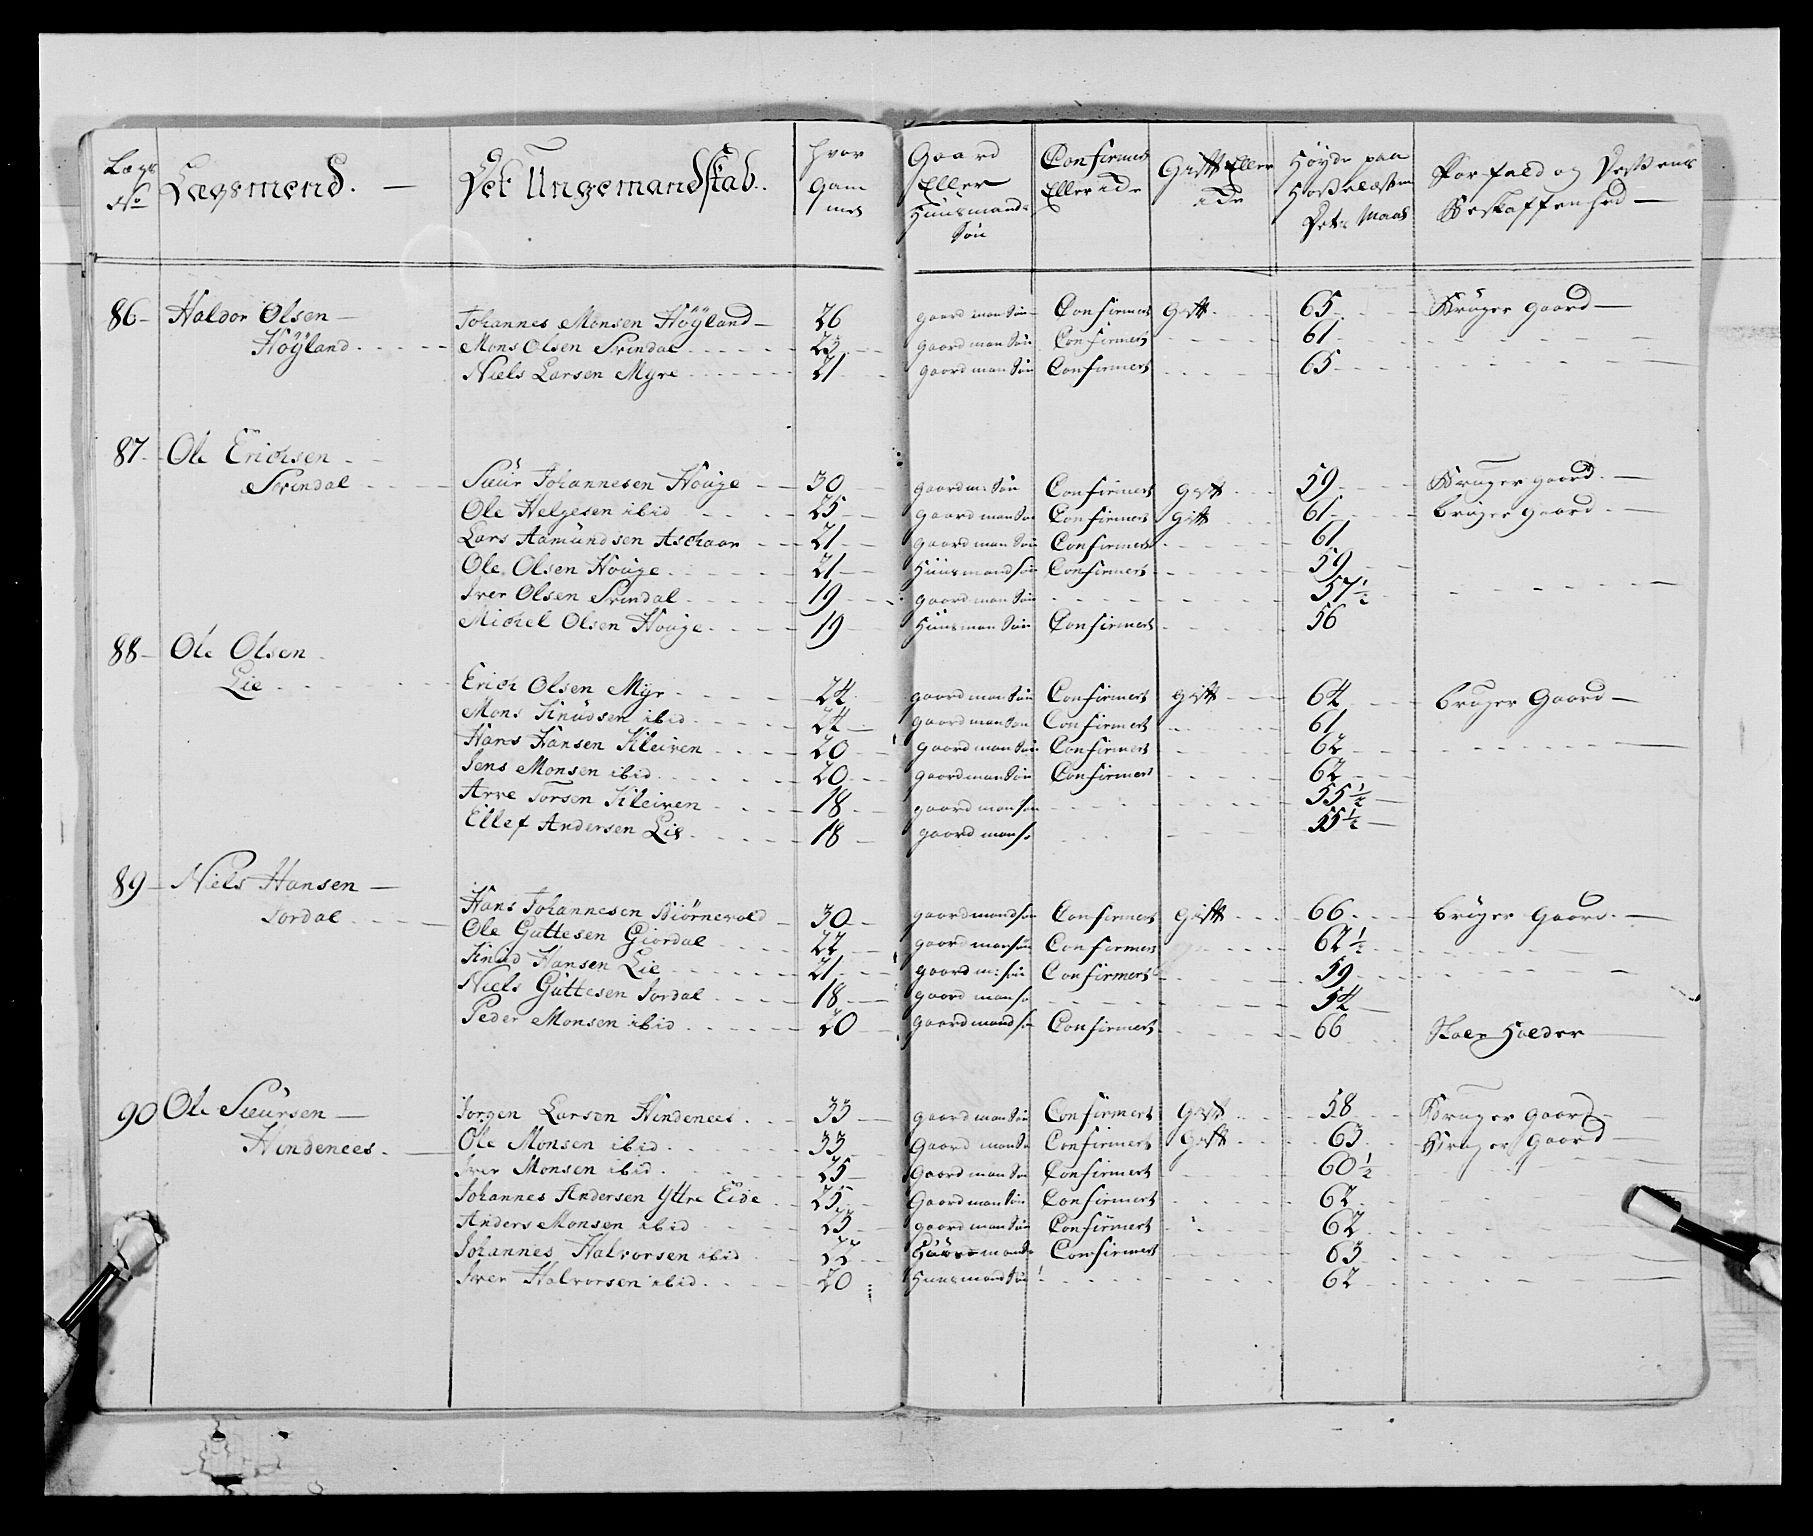 Lægs No
Lægsmend. —
Det Ungemandskab.
hvor Gam mel
Gaard Eller Huusmands Søn
Confirmert Eller ide
Gift Eller ide
Höyde paa Hoselæsten Det Maal
Forfald og Destens Beskaffenhed —
86 — Haldor Olsen — Johannes Monsen Höyland — 26 gaard man Sön Confirmert gift 65 Bruger gaard —
Höyland Mons Olsen Svindal 23 gaard man Sön Confirmert 61
Niels Larsen Myre 21 gaard man Sön Confirmert 65
87 Ole Erichsen
Svindal Siur Johannesen Houge 30 gaard m: Sön Confirmert gift 59 Bruger gaard. —
Ole Helgesen ibid 25 gaard man Sön Confirmert gift 61 bruger gaard. —
Lars Aamundsen Aschaar 21 gaard man Sön Confirmert 61
Ole Olsen Houge 21 Huusmand sön Confirmert 59
Iver Olsen Svindal 19 gaard man Sön 57 1/2
Michel Olsen Houge 19 Huusman Sön Confirmert 56
88 — Ole Olsen
Lie Erich Olsen Myr 24 gaard man Sön Confirmert gift 64 bruger Gaard —
Mons Knudsen ibid 24 gaard man Sön Confirmert 61
Hans Hansen Kleiven 20 gaard man Sön Confirmert 62
Jens Monsen ibid 20 gaard man Sön Confirmert 62
Arve Torsen Kleiven 18 gaard man sön 55 1/2
Ellef Andersen Lie 18 gaard man sö 55 1/2
89 — Niels Hansen —
Jordal Hans Johannesen Biörnevold 30 gaard mand sön Confirmert Gift 66 brüger gaard. —
Ole Guttesen Giordal 22 gaard man sön Confirmert 62 1/2
Knud Hansen Lie 21 gaard m: sön Confirmert 59
Niels Guttesen Jordal 18 gaard man sö 54
Peder Monsen ibid 20 gaard mand sön Confirmert 66 Skole Holder
90 Ole Siursen — Jorgen Larsen Hindenees 33 gaard man Sön Confirmert Gift 58 Bruger gaard —
Hindenees Ole Monsen ibid 33 Gaard man Sö Confirmert Gift 63 Bruger gaard —
Iver Monsen ibid 25 Gaard man Sön Confirmert 60 1/2
Johannes Andersen Yttre Eide 25 Gaard man Sön Confirmert 62
Anders Monsen ibid 23 gaard man Sön Confirmert 62
Johannes Halvorsen ibid 22 Confirmert 63
Iver Halvorsen ibid 20 Huusmand Sön 62